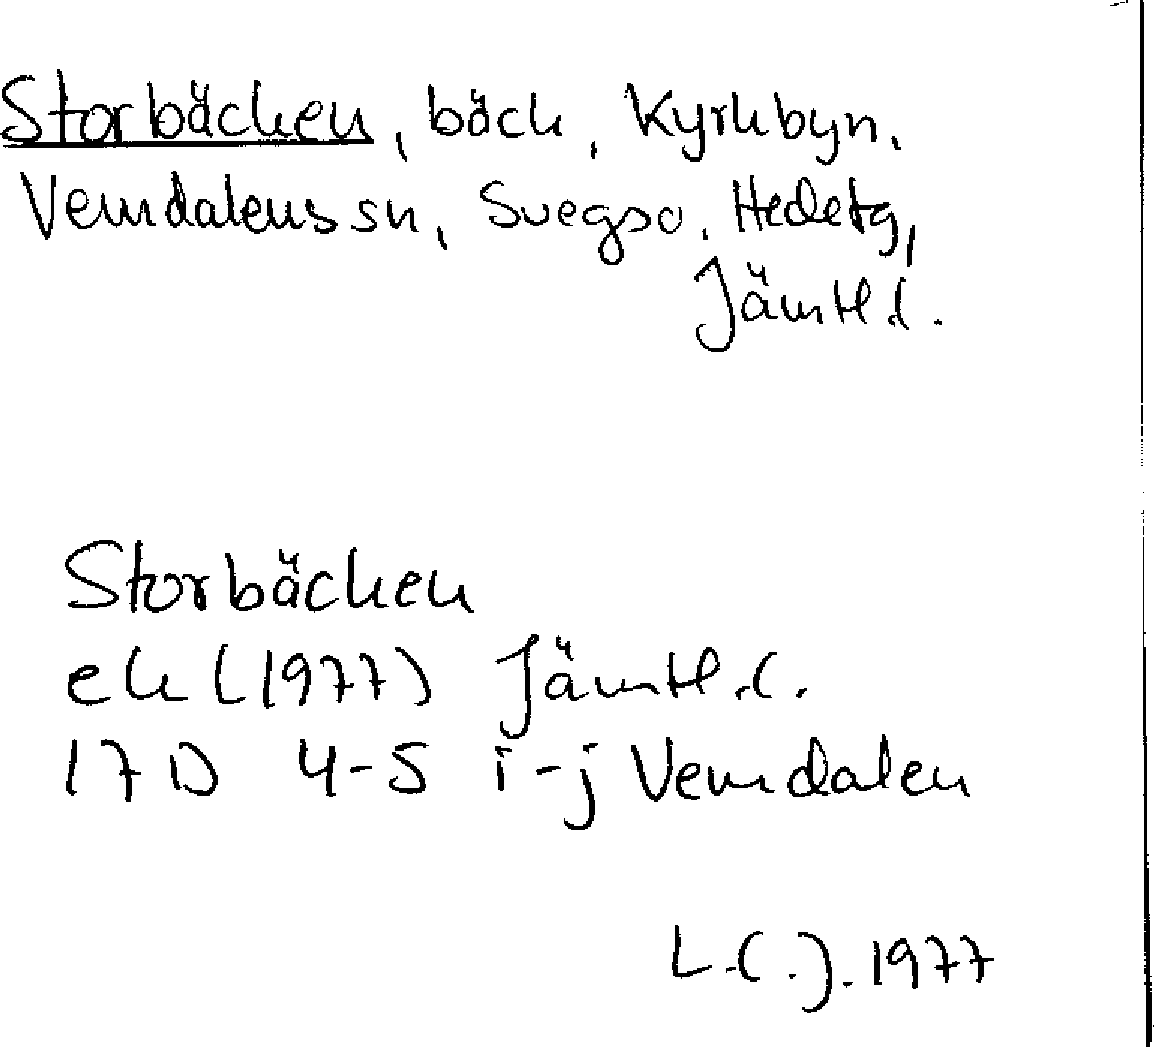 Storbäcken, bäck, Kyrkbyn,
Vemdalens sn, Svegs so, Hedetg,
Jämtl.l.
Storbäcken
ek (1977) Jämtl.l.
17D 4-5 i-j Vemdalen
1977